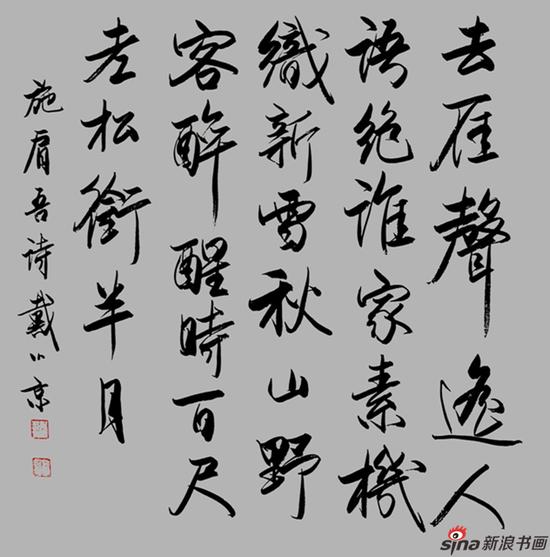 去雁聲遙人
语绝谁家素機
織新雪秋山野
客醉醒時百尺
老松銜半月
施肩吾诗戴小京
sina新浪书画